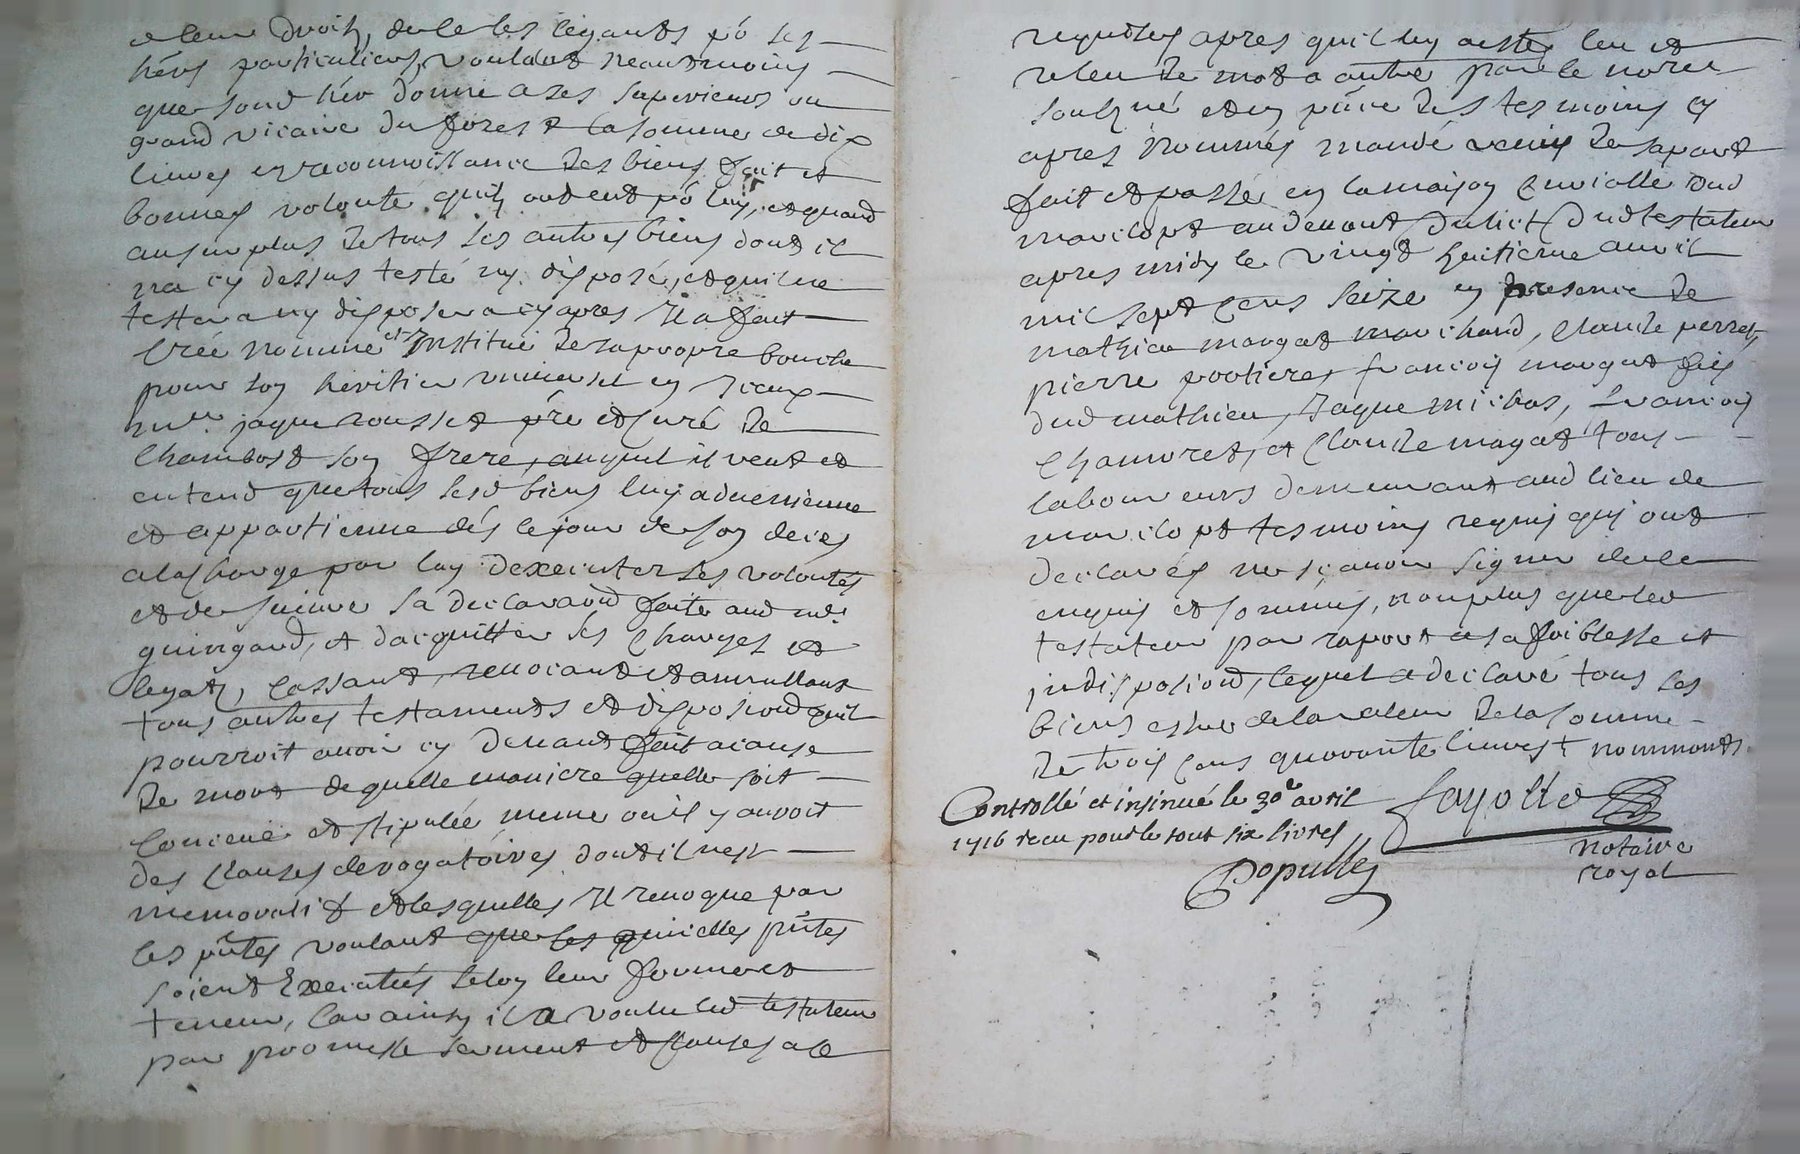 a leur droit, de le les legants po ses
hérs particuliers, voulant neantmoins
que sond hér donne a ses superieurs ou
grand vicaire du forest la somme de dix
livres en reconnoissance des biens fait et
bonnes volonté quilz ont eut po luy, et quand
au surplus de tous ses autres biens dont il
na cy dessus testé ny disposé, et quil ne
testera ny disposera cy apres Il a fait
créé nommé et Institué de sa propre bouche
pour son heritier universel en Iceux
mre jaque rousset pre et curé de
Chambost son frere, auquel il veut et
entend que tous sesd biens luy advenienne
et appartienne dés le jour de son deces
a la charge par luy dexecuter ses volontés
et de suivre sa declaraon faite aud mr
guingand, et dacquitter ses charges et
legatz, cassant, revocant et annullant
tous autres testaments et disposiond quil
pourroit avoir cy devant fait a cause
de mort de quelle maniere quelle soit
conceue et stipulée meme ou il y auroit
des clauses derogatoires dont il nest
memoratif et lesquelles Il revoque par
les pntes voulant que les pntes
soient Executés selon leur forme et
teneur, car ainsy il a voulu led testateur
par promesse serment et clauses a ce
requises apres quil luy a esté leu et
releu de mot a autre par le notre
soubzné et en pnce des tesmoins cy
apres nommés mandé venir de sa part
fait et passé en la maison curialle dud
marcilopt au devant du lict dud testateur
apres midy le vingt huitieme avril
mil sept cens seize en presence de
mathieu margat marchand, Claude perret,
pierre pootieres francois margat fils
dud mathieu, Jaque michas, francois
Chamoret, et Claude magat tous
laboureurs demeurant aud lieu de
marcilopt tesmoins requis qui ont
declarés ne sçavoir signer de ce
enquis et sommés, non plus que led
testateur par raport a sa foiblesse et
indisposiond, lequel a declaré tous ses
biens estre de la valeur de la somme
de trois cens quarante livres
Controllé et insinué le 30e avril fayolle
1716 receu pour le tout six livres notaire
Populle royal